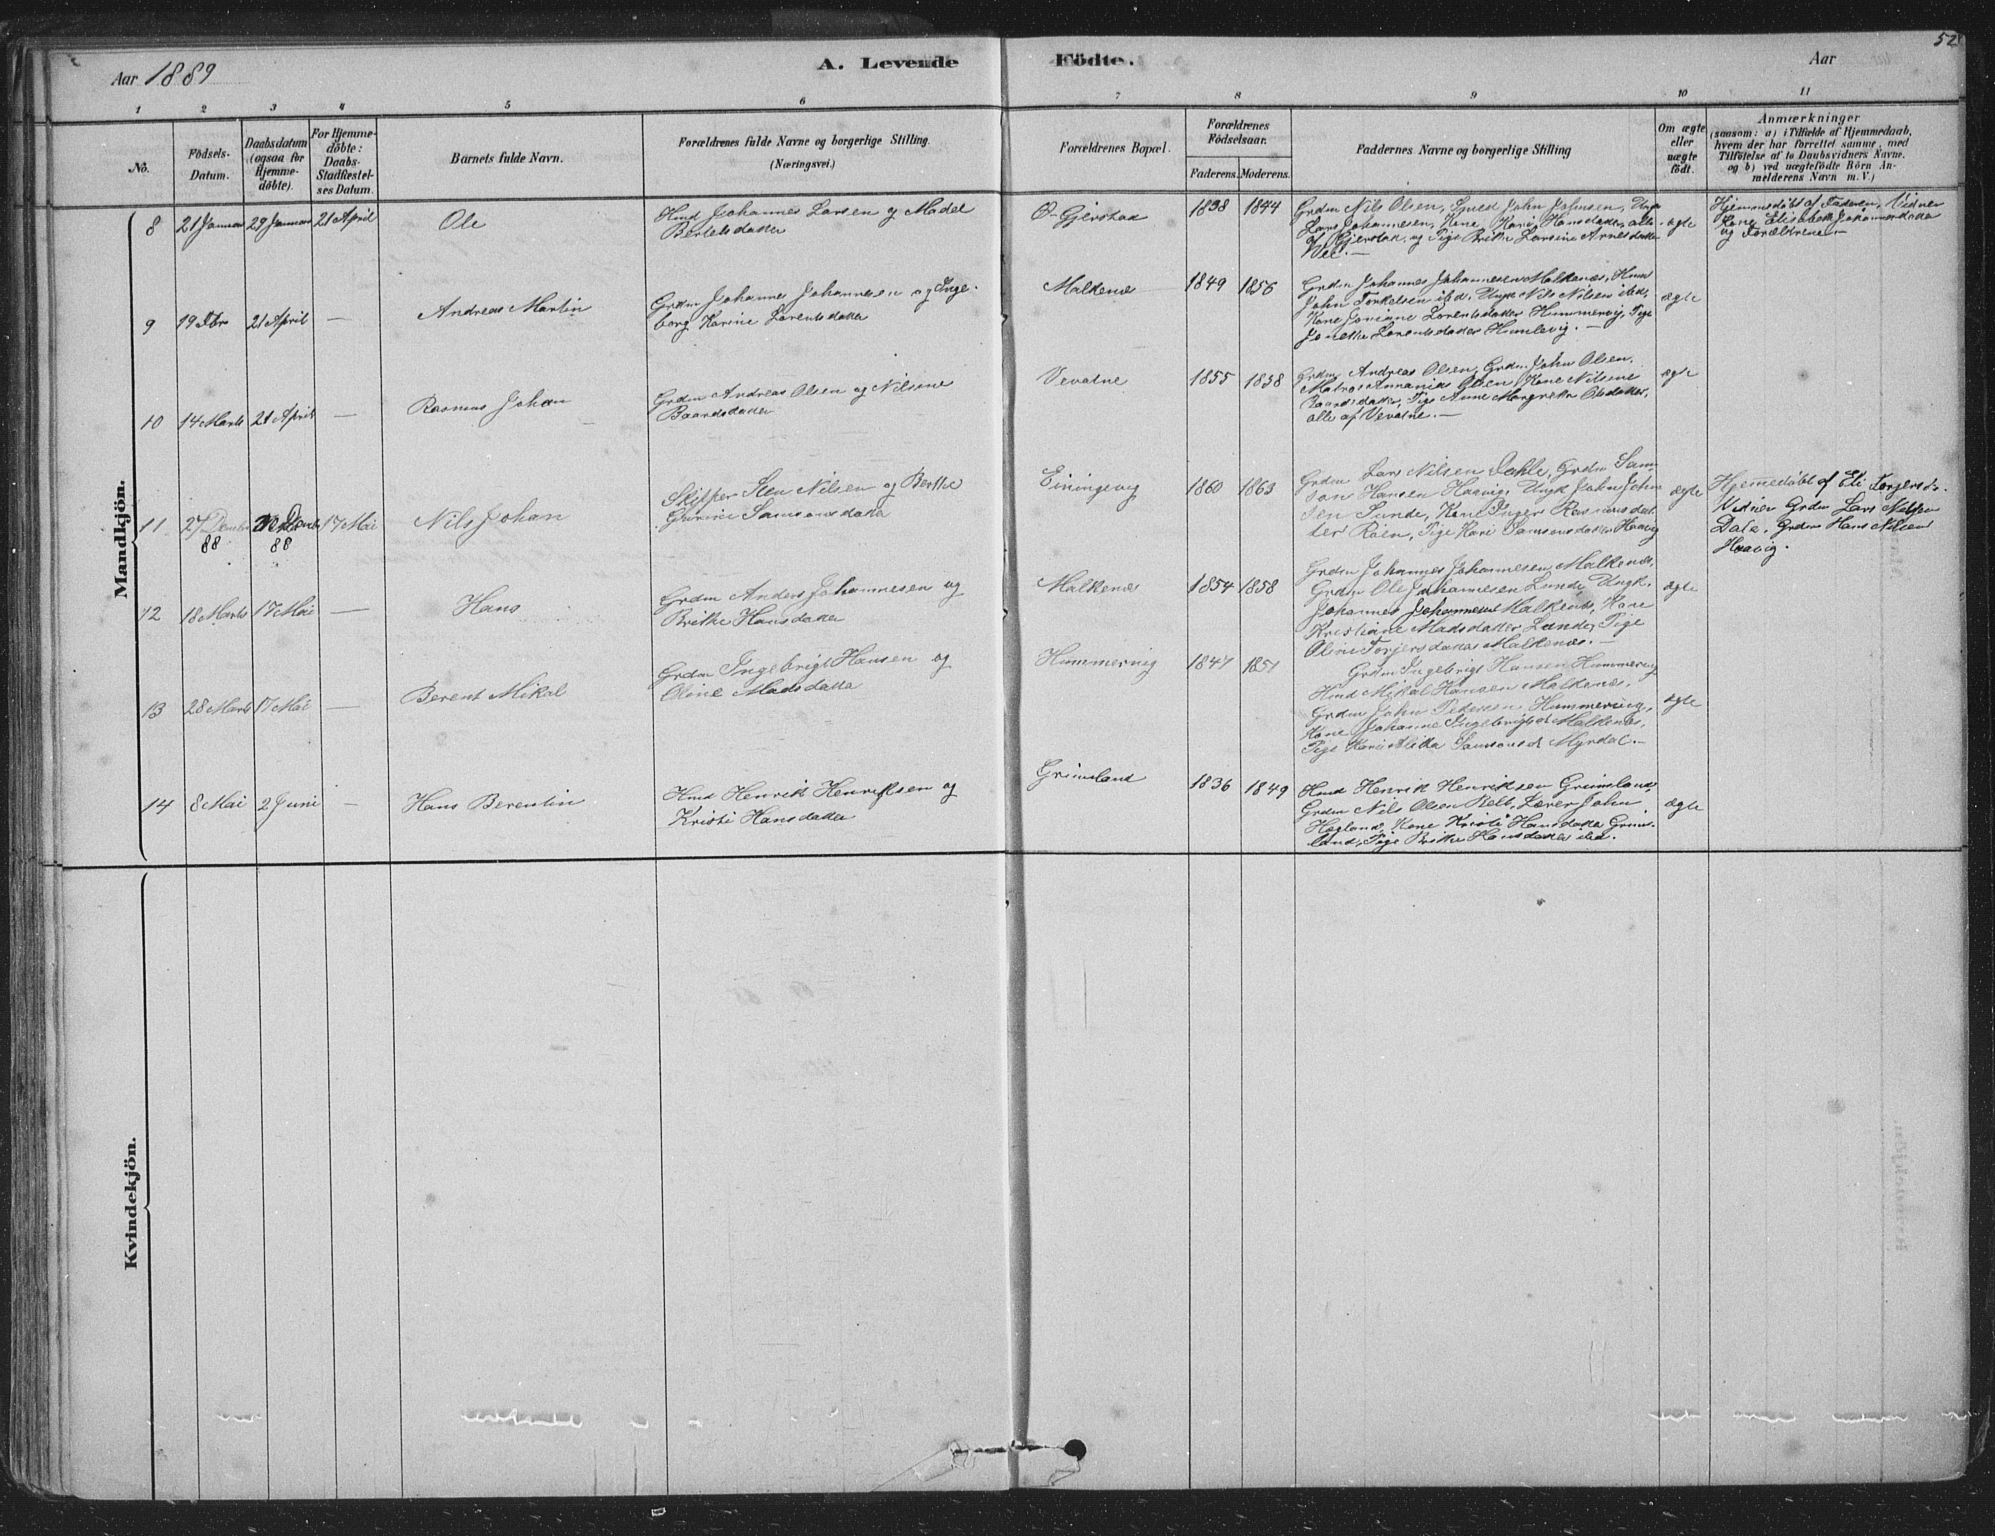 52
Aar 1889
A. Levende Födte.
Aar
1 2 3 4 5 6 7 8 9 10 11
No.
Födsels-
Datum.
Daabsdatum
(ogsaa for
Hjemme-
döbte).
For Hjemme-
döbte:
Daabs-
Stadfæstel-
ses Datum.
Barnets fulde Navn.
Forældrenes fulde Navne og borgerlige Stilling.
(Næringsvei.)
Forældrenes Bopæl.
Forældrenes
Födselsaar.
Faderens. Moderens.
Faddernes Navne og borgerlige Stilling
Om ægte
eller
uægte
födt.
Anmærkninger
(saasom: a) i Tilfælde af Hjemmedaab,
hvem der har forrettet samme, med
Tilföielse af to Daabsvidners Navne,
og b) ved uægtefödte Börn An-
melderens Navn m. V.)
Mandkjön.
8 21 Januar 29 Januar 21 April
Ole
Hmd Johannes Larsen og Madel
Bertelsdatter
Ø-Gjerstad
1838 1844
Grdm Nils Olsen, John Johnsen, Ungk
Lars Johannesen, Kone Kari Hansdatter, alle
af Gjerstad, og Pige Brithe Larsine Arnesdatter
ægte
Hjemmedöbt af Faderen, Vidner
Kone Elisabeth Johannesdatter
og Forældrene.—
9 19 Fbr 21 April —
Andreas Martin
Grdm Johannes Johannesen og Inge-
borg Karine Larentsdatter
Malkenæs
1849 1856
Grdm Johannes Johannesen Malkenæs, Hmd
John Torkelsen ibd, Ungk Nils Nilsen ibd,
Kone Joriane Lorentsdatter Hummervig, Pige
Jonette Lorentsdatter Humlevig.—
ægte
10 14 Marts 21 April —
Rasmus Johan
Grdm Andreas Olsen og Nilsine
Baardsdatter
Vevatne
1855 1858
Grdm Andreas Olsen, Grdm John Olsen,
Matros Annanias Olsen, Kone Nilsine
Baardsdatter, Pige Anne Margrethe Olsdatter,
alle af Vevatne.—
ægte
11 27 Decmbr 88 88 17 Mai
Nils Johan
Skipper Sten Nilsen og Berthe
Gurine Samsonsdatter
Einingevig
1860 1863
Grdm Lars Nilsen Dahle, Grdm Sam-
son Hansen Haavig, Ungk John John-
sen Sunde, Kone Inger Rasmusdat-
ter Röen, Pige Kari Samsonsdatter Haavig
ægte
Hjemedöbt af Eli Torjersdr.
Vidner Grdm Lars Nilsen
Dale, Grdm Hans Nilsen
Haavig.
12 18 Marts 17 Mai —
Hans
Grdm Anders Johannesen og
Brithe Hansdatter
Malkenæs
1854 1858
Grdm Johannes Johannesen Malkenæs,
Grdm Ole Johannesen Lunde, Ungk.
Johannes Johannesen Malkenæs, Kone
Kristiane Madsdatter Lunde, Pige
Oline Torjersdatter Malkenæs.—
ægte
13 28 Marts 17 Mai —
Berent Mikal
Grdm Ingebrigt Hansen og
Oline Madsdatter
Hummervig
1847 1851
Grdm Ingebrigt Hansen Hummervig
Hmd Mikal Hansen Malkenæs,
Grdm John Pedersen Hummervig,
Kone Johanne Ingebrigtsd Malkenæs,
Pige Kari Alida Samsonsd Myrdal.—
ægte
14 8 Mai 2 Juni —
Hans Berentin
Hmd Henrik Henriksen og
Kristi Hansdatter
Grimsland
1836 1849
Hmd Henrik Henriksen Grimsland,
Grdm Nils Olsen Belt, Lærer John
Hagland, Kone Kristi Hansdatter Grims-
land, Pige Brithe Hansdatter ibd.
ægte
Kvindekjön.